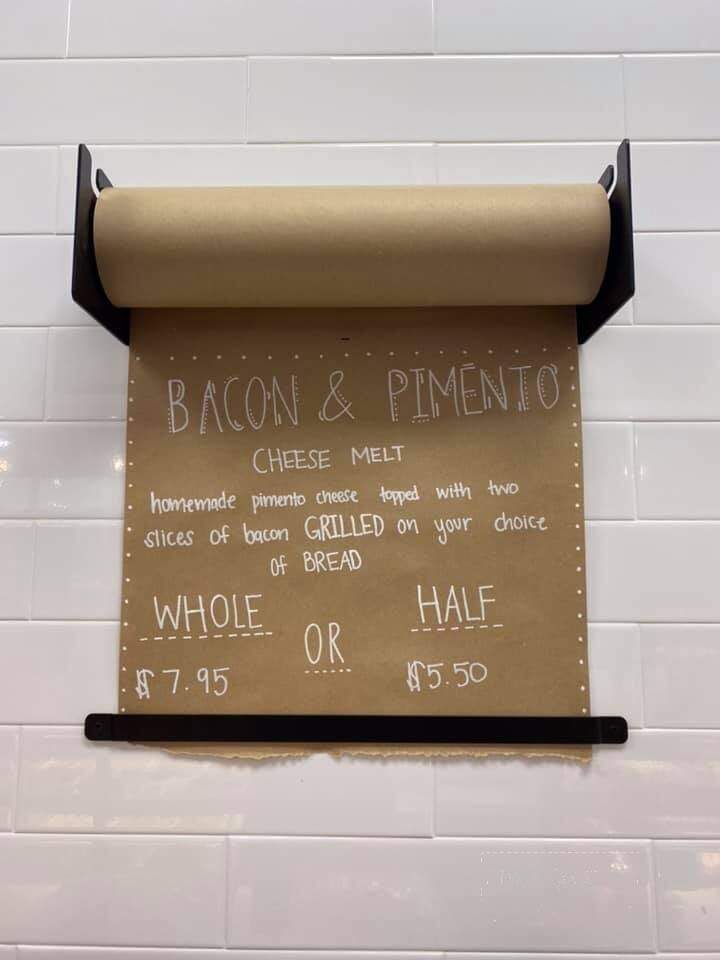 BACON & PIMENTO
CHEESE MELT
homemade pimento cheese topped with two
slices of bacon GRILLED on your choice
of BREAD
WHOLE OR HALF
$7.95 $5.50